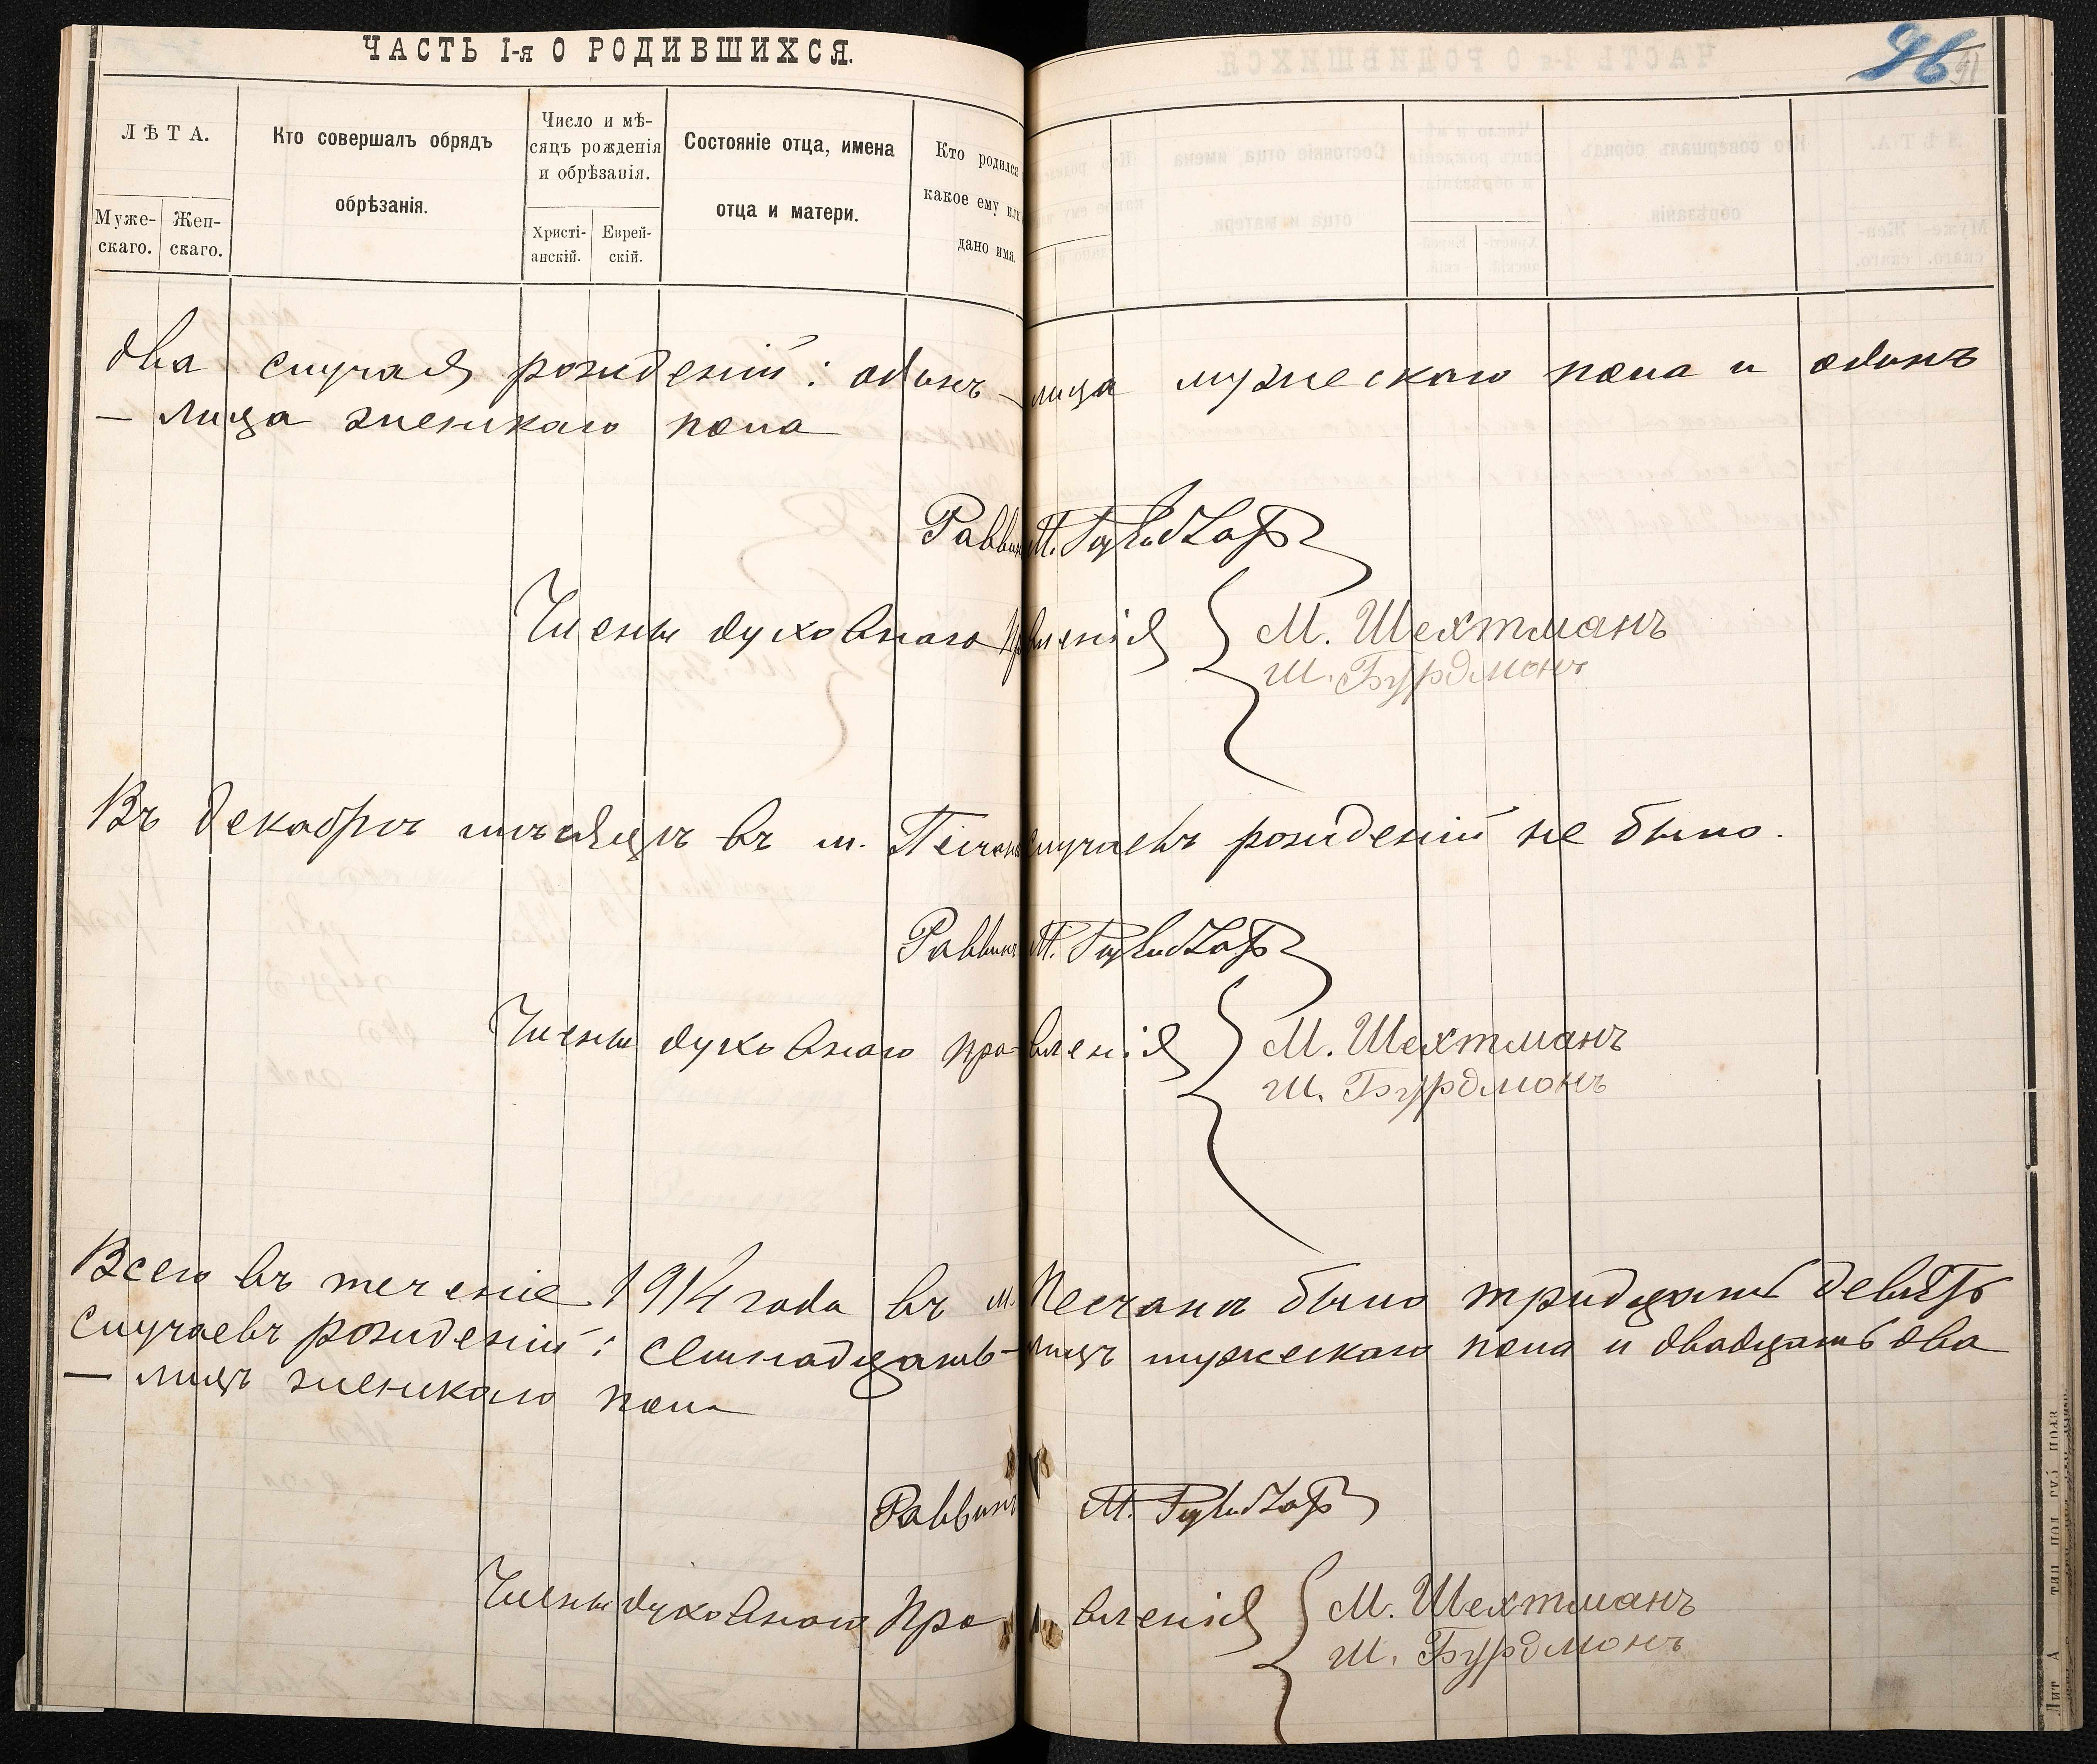 ЧАСТЬ I-я О РОДИВШИХСЯ.
96
ЛѢТА.
Муже-
скаго.
Жен-
скаго.
Кто совершалъ обрядъ
обрѣзанія.
Число и мѣ-
сяцъ рожденія
и обрѣзанія.
Христі-
анскій.
Еврей-
скій.
Состояніе отца, имена
отца и матери.
Кто родился
какое ему или
дано имя.
два случая рожденій: одинъ – лица мужескаго пола и одинъ
– лица женскаго пола
Раввинъ М.
Члены духовнаго правленія { М. Шехтманъ
Ш. Бурдмонъ
Въ декабрѣ мѣсяцѣ въ м. Песчанѣ случаевъ рожденій не было.
Раввинъ М.
Члены духовнаго правленія { М. Шехтманъ
Ш. Бурдмонъ
Всего въ теченіе 1914 года въ м. Песчанѣ было тридцать девять
случаевъ рожденій: семнадцать – лицъ мужескаго пола и двадцать два
– лицъ женскаго пола
Раввинъ М.
Члены духовнаго правленія { М. Шехтманъ
Ш. Бурдмонъ